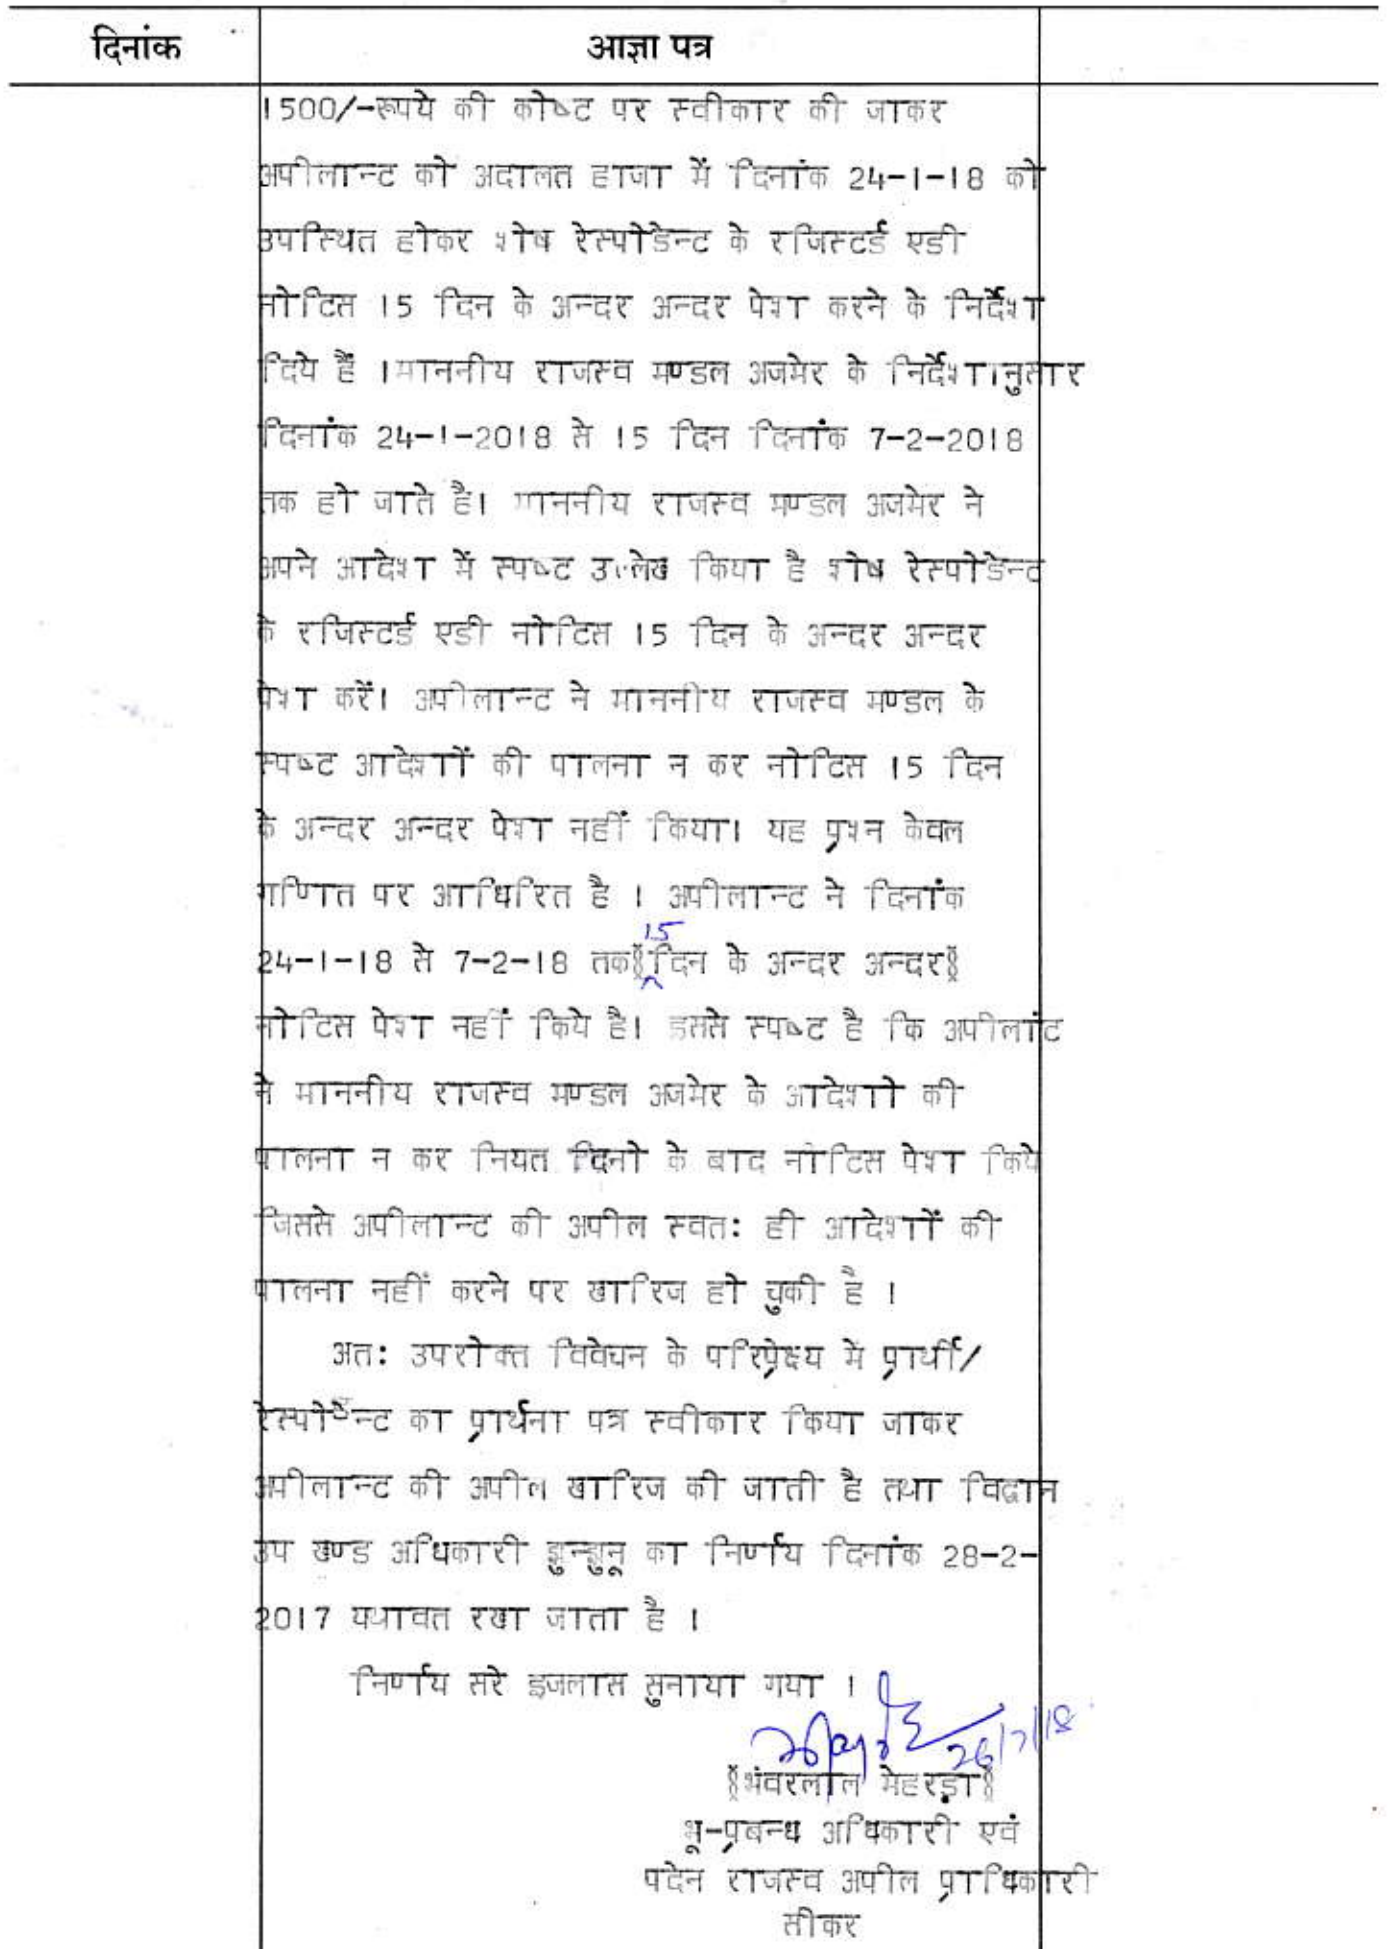 दिनांक आज्ञा पत्र
1500/-रूपये की कोष्ट पर स्वीकार की जाकर
अपीलान्ट को अदालत हाजा में दिनांक 24-1-18 को
उपस्थित होकर शेष रेस्पोडेन्ट के रजिस्टर्ड एडी
नोटिस 15 दिन के अन्दर अन्दर पेश करने के निर्देश
दिये हैं ।माननीय राजस्व मण्डल अजमेर के निर्देशानुसार
दिनांक 24-1-2018 से 15 दिन दिनांक 7-2-2018
तक हो जाते है। माननीय राजस्व मण्डल अजमेर ने
अपने आदेश में स्पष्ट उल्लेख किया है शेष रेस्पोडेन्ट
के रजिस्टर्ड एडी नोटिस 15 दिन के अन्दर अन्दर
पेश करें। अपीलान्ट ने माननीय राजस्व मण्डल के
स्पष्ट आदेशों की पालना न कर नोटिस 15 दिन
के अन्दर अन्दर पेश नहीं किया। यह प्रश्न केवल
गणित पर आधिरित है । अपीलान्ट ने दिनांक
24-1-18 से 7-2-18 तक§15 दिन के अन्दर अन्दर§
नोटिस पेश नहीं किये है। इससे स्पष्ट है कि अपीलांट
ने माननीय राजस्व मण्डल अजमेर के आदेशो की
पालना न कर नियत दिनो के बाद नोटिस पेश किये
जिससे अपीलान्ट की अपील स्वत: ही आदेशों की
पालना नहीं करने पर खारिज हो चुकी है ।
अत: उपरोक्त विवेचन के परिप्रेक्ष्य मे प्रार्थी/
रेस्पोडेन्ट का प्रार्थना पत्र स्वीकार किया जाकर
अपीलान्ट की अपील खारिज की जाती है तथा विद्वान
उप खण्ड अधिकारी झुन्झुनू का निर्णय दिनांक 28-2-
2017 यथावत रखा जाता है ।
निर्णय सरे इजलास सुनाया गया ।
26/7/18
§भंवरलाल मेहरड़ा§
भू-प्रबन्ध अधिकारी एवं
पदेन राजस्व अपील प्राधिकारी
सीकर